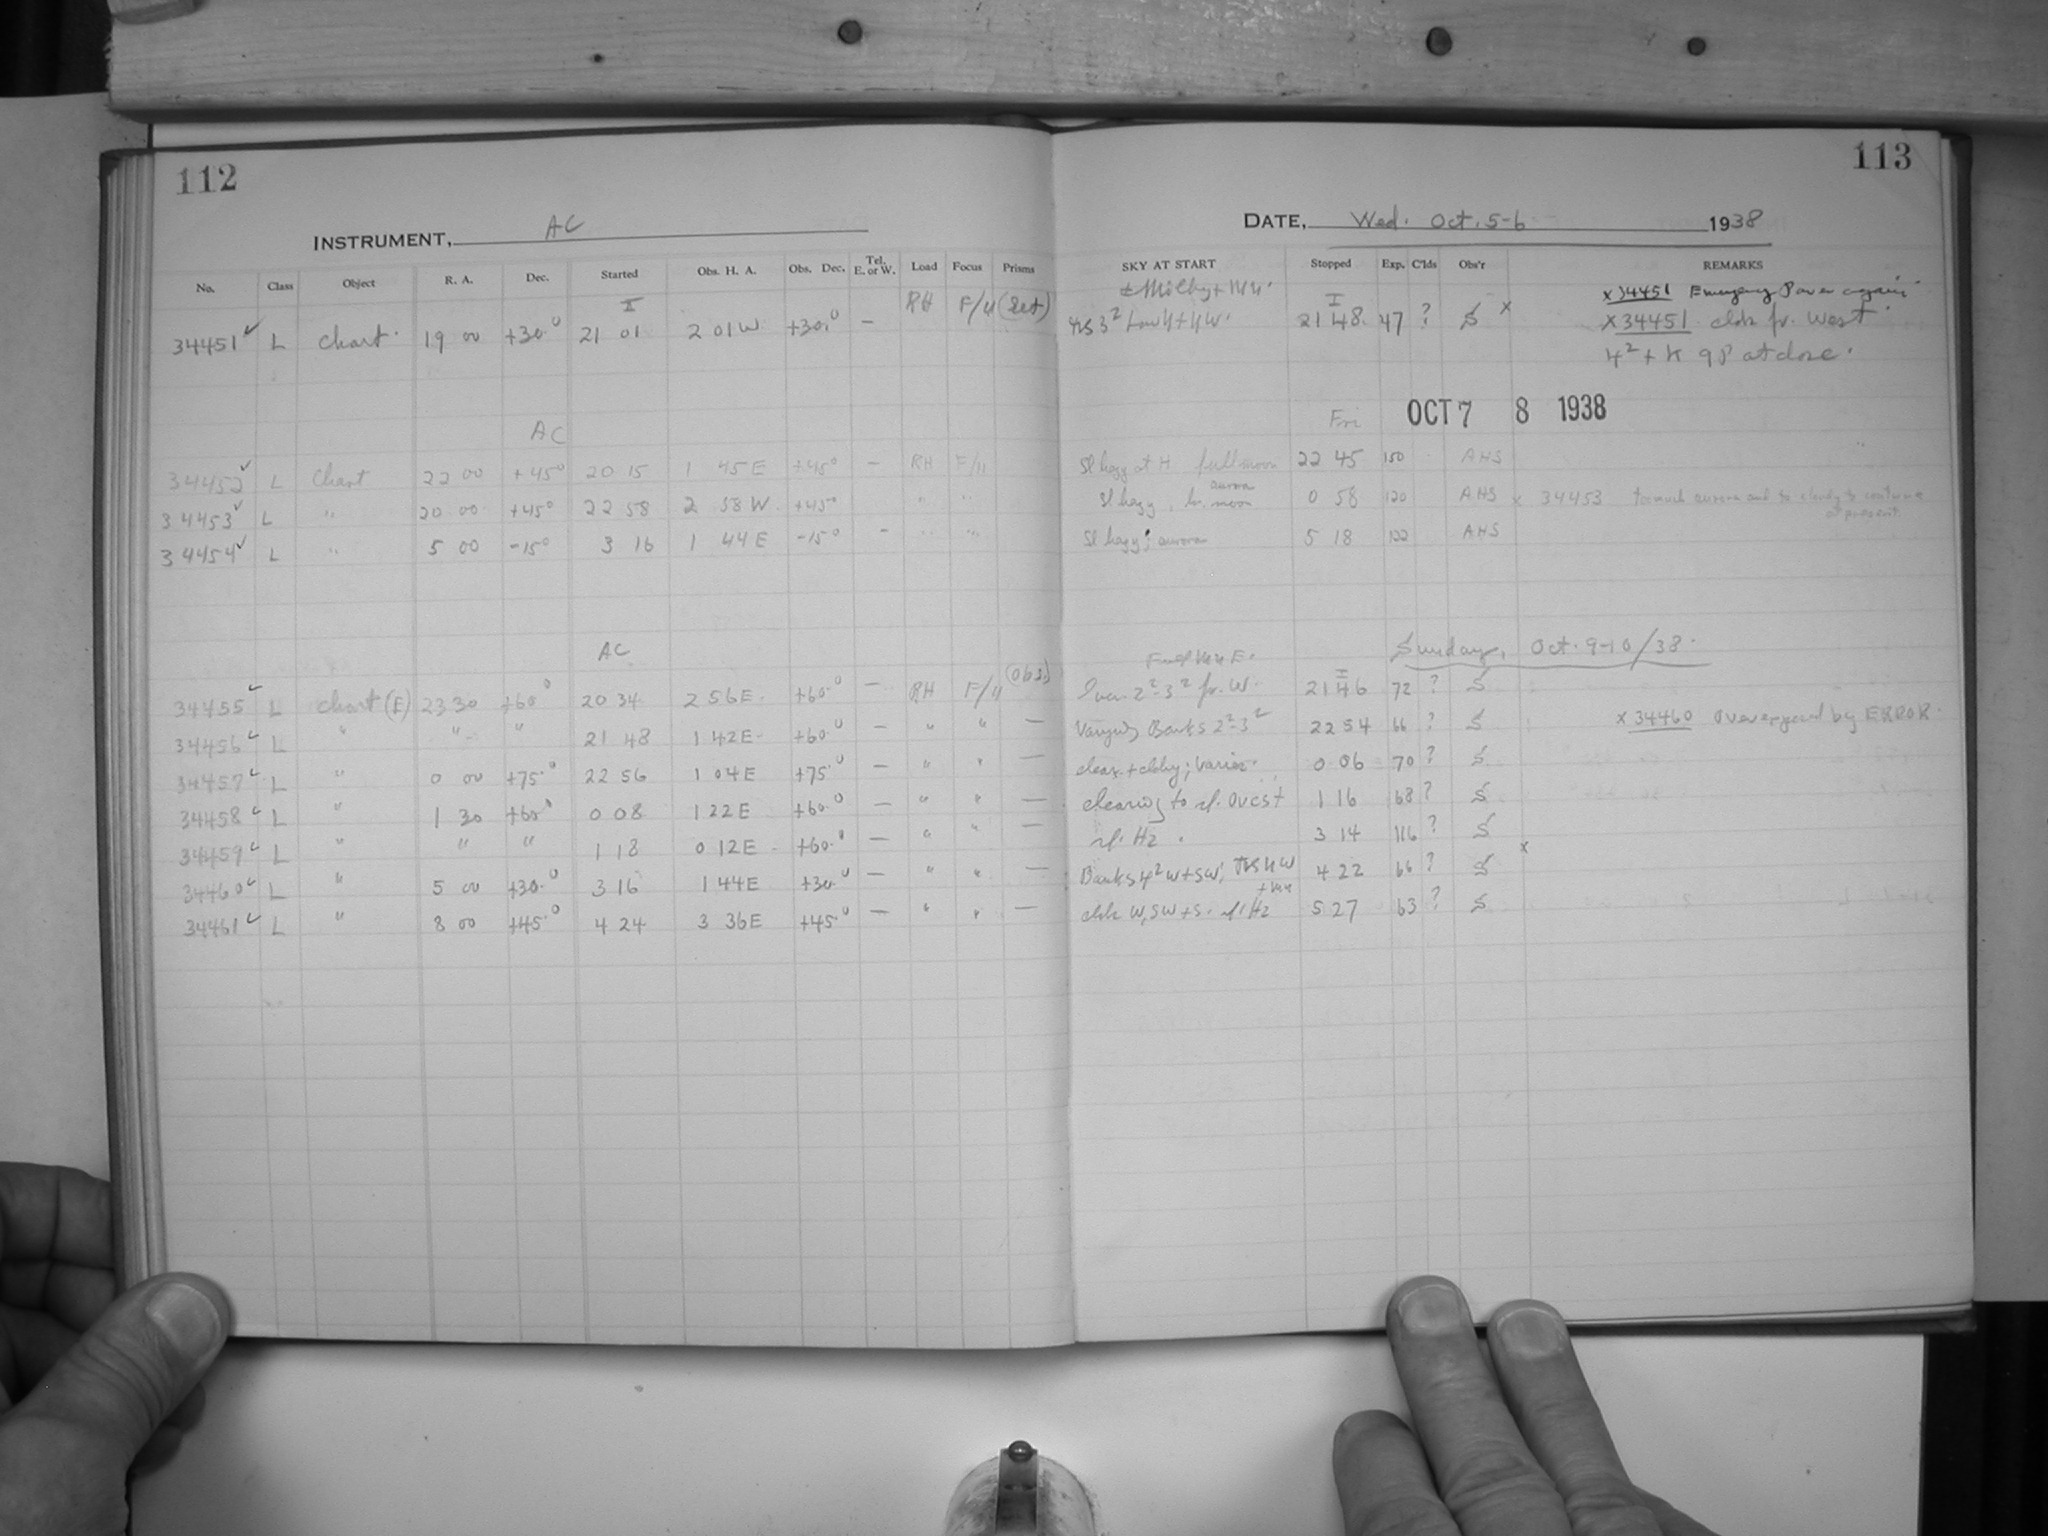 112
113
INSTRUMENT, AC
DATE, Wed. Oct. 5-6 1938
No. Class Object R. A. Dec. Started Obs. H. A. Obs. Dec. Tel. E. or W. Load Focus Prisms
SKY AT START Stopped Exp. C'lds Obs'r REMARKS
RH F/11
x34451 Emergency Power again
34451 ✓ L Chart. 19 00 +30° 21 01 2 01 W +30.° — 21 48 47 ? S x x34451 clds fr. West
4² + K 9 P at close.
Fri OCT 7 8 1938
AC
34452 ✓ L Chart 22 00 +45° 20 15 1 45 E +45° — RH F/11 Sl hazy at H full moon 22 45 150 AHS
34453 ✓ L " 20 00 +45° 22 58 2 58 W +45° " " Sl hazy, br. moon aurora 0 58 120 AHS x 34453 too much aurora and to cloudy to continue
at present
34454 ✓ L " 5 00 -15° 3 16 1 44 E -15° - " " Sl hazy; aurora 5 18 122 AHS
AC
Sunday, Oct. 9-10/38.
(obs.)
34455 ✓ L Chart (E) 23 30 +60° 20 34 2 56 E. +60.° — RH F/11 2²-3² fr. W. 21 46 72 ? S
34456 ✓ L " " " 21 48 1 42 E- +60.° — " " — Varying Banks 2²-3² 22 54 66 ? S x 34460 Overexposed by ERROR.
34457 ✓ L " 0 00 +75.° 22 56 1 04 E +75.° — " " — clear + cldy; varies. 0 06 70 ? S
34458 ✓ L " 1 30 +60.° 0 08 1 22 E +60.° — " " — clearing to sl. Ovcst 1 16 68 ? S
34459 ✓ L " " " 1 18 0 12 E - +60.° — " " — sl. Hz. 3 14 116 ? S
34460 ✓ L " 5 00 +30.° 3 16 1 44 E +30.° — " " — Banks 4² W + SW; 4 22 66 ? S x
34461 ✓ L " 8 00 +45.° 4 24 3 36 E +45.° — " " — clds W, SW + S. sl. Hz 5 27 63 ? S